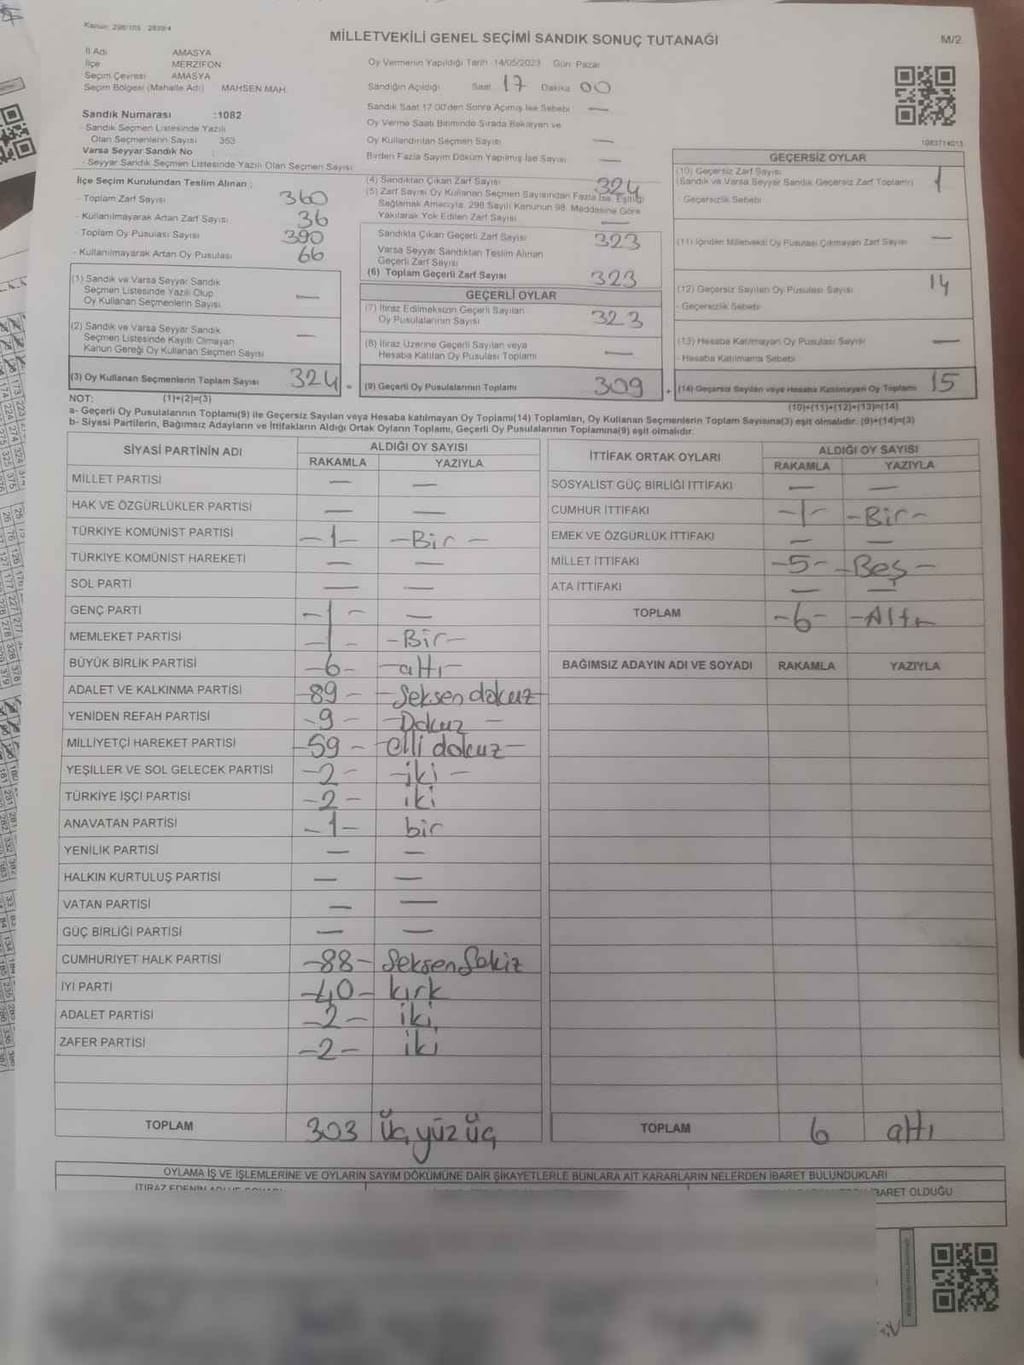 Kanun: 298/105 2839/4
MİLLETVEKİLİ GENEL SEÇİMİ SANDIK SONUÇ TUTANAĞI
M/2
İl Adı AMASYA
İlçe MERZİFON
Seçim Çevresi AMASYA
Seçim Bölgesi (Mahalle Adı) MAHSEN MAH.
Sandık Numarası :1082
Sandık Seçmen Listesinde Yazılı
Olan Seçmenlerin Sayısı 353
Varsa Seyyar Sandık No :
- Seyyar Sandık Seçmen Listesinde Yazılı Olan Seçmen Sayısı
Oy Vermenin Yapıldığı Tarih 14/05/2023 Gün: Pazar
Sandığın Açıldığı Saat 17 Dakika 00
Sandık Saat 17:00'den Sonra Açılmış İse Sebebi —
Oy Verme Saati Bitiminde Sırada Bekleyen ve
Oy Kullandırılan Seçmen Sayısı —
Birden Fazla Sayım Döküm Yapılmış İse Sayısı —
İlçe Seçim Kurulundan Teslim Alınan ;
- Toplam Zarf Sayısı 360
- Kullanılmayarak Artan Zarf Sayısı 36
- Toplam Oy Pusulası Sayısı 390
- Kullanılmayarak Artan Oy Pusulası 66
(1) Sandık ve Varsa Seyyar Sandık
Seçmen Listesinde Yazılı Olup
Oy Kullanan Seçmenlerin Sayısı —
(2) Sandık ve Varsa Seyyar Sandık
Seçmen Listesinde Kayıtlı Olmayan
Kanun Gereği Oy Kullanan Seçmen Sayısı —
(3) Oy Kullanan Seçmenlerin Toplam Sayısı 324 =
(4) Sandıktan Çıkan Zarf Sayısı 324
(5) Zarf Sayısı Oy Kullanan Seçmen Sayısından Fazla İse, Eşitliği
Sağlamak Amacıyla, 298 Sayılı Kanunun 98. Maddesine Göre
Yakılarak Yok Edilen Zarf Sayısı —
Sandıkta Çıkan Geçerli Zarf Sayısı 323
Varsa Seyyar Sandıktan Teslim Alınan
Geçerli Zarf Sayısı
(6) Toplam Geçerli Zarf Sayısı 323
GEÇERLİ OYLAR
(7) İtiraz Edilmeksizin Geçerli Sayılan
Oy Pusulalarının Sayısı 323
(8) İtiraz Üzerine Geçerli Sayılan veya
Hesaba Katılan Oy Pusulası Toplamı —
(9) Geçerli Oy Pusulalarının Toplamı 309 +
1083714013
GEÇERSİZ OYLAR
(10) Geçersiz Zarf Sayısı
(Sandık ve Varsa Seyyar Sandık Geçersiz Zarf Toplamı) 1
- Geçersizlik Sebebi
(11) İçinden Milletvekili Oy Pusulası Çıkmayan Zarf Sayısı —
(12) Geçersiz Sayılan Oy Pusulası Sayısı 14
- Geçersizlik Sebebi
(13) Hesaba Katılmayan Oy Pusulası Sayısı —
- Hesaba Katılmama Sebebi
(14) Geçersiz Sayılan veya Hesaba Katılmayan Oy Toplamı 15
NOT: (1)+(2)=(3) (10)+(11)+(12)+(13)=(14)
a- Geçerli Oy Pusulalarının Toplamı(9) ile Geçersiz Sayılan veya Hesaba katılmayan Oy Toplamı(14) Toplamları, Oy Kullanan Seçmenlerin Toplam Sayısına(3) eşit olmalıdır. (9)+(14)=(3)
b- Siyasi Partilerin, Bağımsız Adayların ve İttifakların Aldığı Ortak Oyların Toplamı, Geçerli Oy Pusulalarının Toplamına(9) eşit olmalıdır.
SİYASİ PARTİNİN ADI ALDIĞI OY SAYISI
RAKAMLA YAZIYLA
MİLLET PARTİSİ — —
HAK VE ÖZGÜRLÜKLER PARTİSİ — —
TÜRKİYE KOMÜNİST PARTİSİ -1- -Bir-
TÜRKİYE KOMÜNİST HAREKETİ — —
SOL PARTİ — —
GENÇ PARTİ -1- —
MEMLEKET PARTİSİ -1- -Bir-
BÜYÜK BİRLİK PARTİSİ -6- -altı-
ADALET VE KALKINMA PARTİSİ -89- -Seksen dokuz
YENİDEN REFAH PARTİSİ -9- -Dokuz-
MİLLİYETÇİ HAREKET PARTİSİ -59- -elli dokuz-
YEŞİLLER VE SOL GELECEK PARTİSİ -2- -iki-
TÜRKİYE İŞÇİ PARTİSİ -2- iki
ANAVATAN PARTİSİ -1- bir
YENİLİK PARTİSİ — —
HALKIN KURTULUŞ PARTİSİ — —
VATAN PARTİSİ — —
GÜÇ BİRLİĞİ PARTİSİ — —
CUMHURİYET HALK PARTİSİ -88- Seksen Sekiz
İYİ PARTİ -40- kırk
ADALET PARTİSİ -2- iki
ZAFER PARTİSİ -2- iki
TOPLAM 303 üç yüz üç
İTTİFAK ORTAK OYLARI ALDIĞI OY SAYISI
RAKAMLA YAZIYLA
SOSYALİST GÜÇ BİRLİĞİ İTTİFAKI — —
CUMHUR İTTİFAKI -1- -Bir-
EMEK VE ÖZGÜRLÜK İTTİFAKI — —
MİLLET İTTİFAKI -5- -Beş-
ATA İTTİFAKI — —
TOPLAM -6- -Altı
BAĞIMSIZ ADAYIN ADI VE SOYADI RAKAMLA YAZIYLA
TOPLAM 6 altı
OYLAMA İŞ VE İŞLEMLERİNE VE OYLARIN SAYIM DÖKÜMÜNE DAİR ŞİKAYETLERLE BUNLARA AİT KARARLARIN NELERDEN İBARET BULUNDUKLARI
İTİRAZ EDENİN
İBARET OLDUĞU